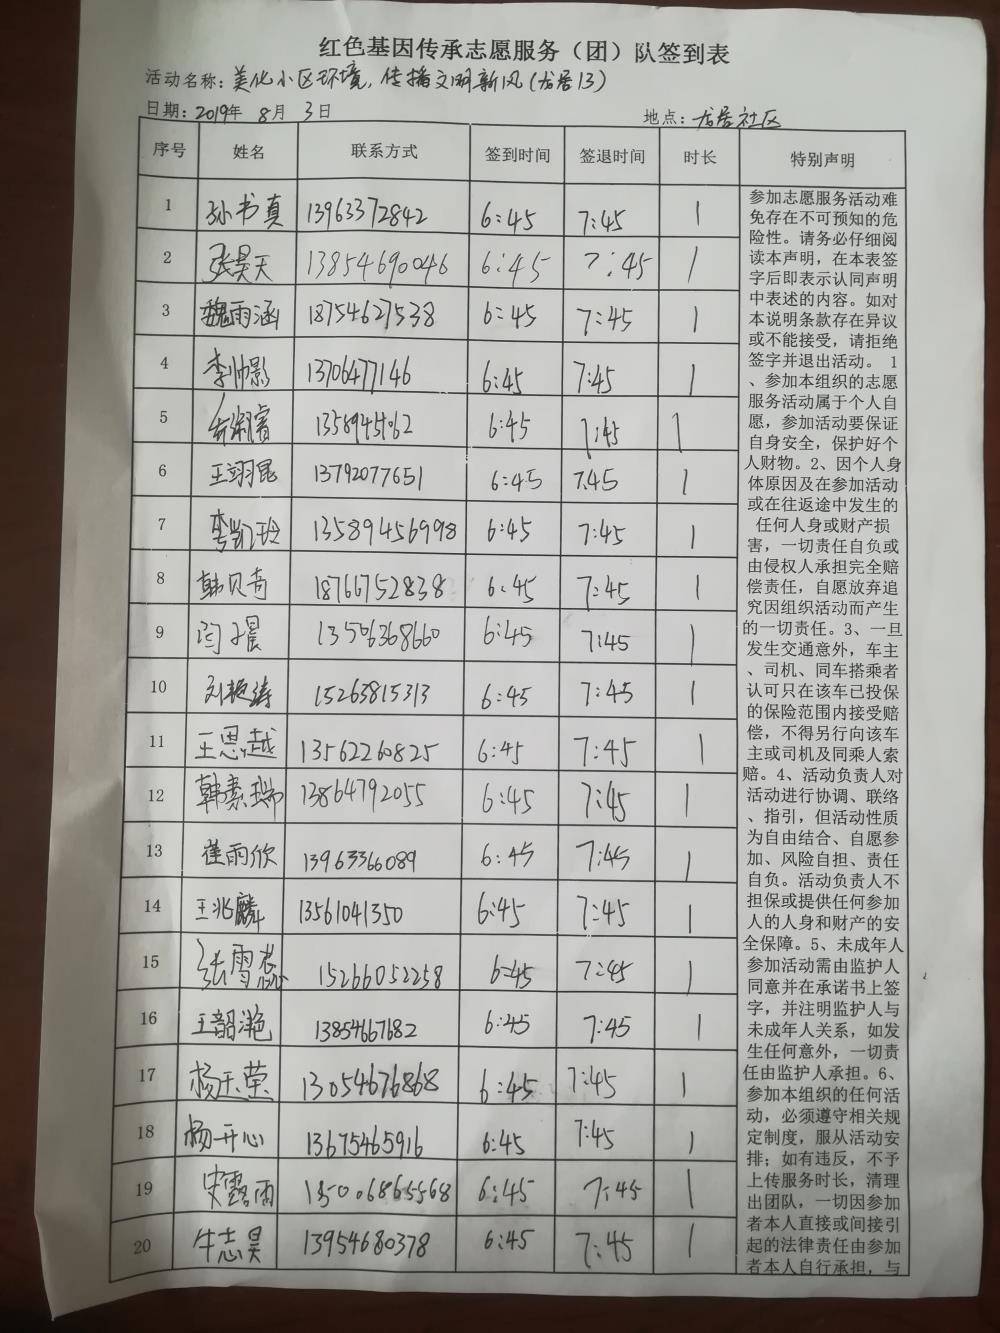 红色基因传承志愿服务（团）队签到表
活动名称：美化小区环境，传播文明新风（龙居13）
日期：2019年 8月 3日 地点：龙居社区
序号 姓名 联系方式 签到时间 签退时间 时长 特别声明
1 孙书真 13963372842 6:45 7:45 1
2 张昊天 13854690046 6:45 7:45 1
3 魏雨涵 18754627538 6:45 7:45 1
4 李帅影 13706477146 6:45 7:45 1
5 6:45 7:45 1
6 王翊昆 13792077651 6:45 7.45 1
7 李凯玲 135894569998 6:45 7:45 1
8 韩贝奇 18766752838 6:45 7:45 1
9 闫子晨 13506368660 6:45 7:45 1
10 刘艳涛 15263815313 6:45 7:45 1
11 王思越 13562260825 6:45 7:45 1
12 韩素瑞 13864792055 6:45 7:45 1
13 崔雨欣 13963366089 6:45 7:45 1
14 王兆麟 13561041350 6:45 7:45 1
15 张雪蕊 15266052258 6:45 7:45 1
16 王韶滟 13854667682 6:45 7:45 1
17 杨玉荣 13054676868 6:45 7:45 1
18 杨开心 13675465916 6:45 7:45 1
19 宋露雨 6:45 7:45 1
20 牛志昊 13954680378 6:45 7:45 1
参加志愿服务活动难
免存在不可预知的危
险性。请务必仔细阅
读本声明，在本表签
字后即表示认同声明
中表述的内容。如对
本说明条款存在异议
或不能接受，请拒绝
签字并退出活动。 1
、参加本组织的志愿
服务活动属于个人自
愿，参加活动要保证
自身安全，保护好个
人财物。2、因个人身
体原因及在参加活动
或在往返途中发生的
任何人身或财产损
害，一切责任自负或
由侵权人承担完全赔
偿责任，自愿放弃追
究因组织活动而产生
的一切责任。3、一旦
发生交通意外，车主
、司机、同车搭乘者
认可只在该车已投保
的保险范围内接受赔
偿，不得另行向该车
主或司机及同乘人索
赔。4、活动负责人对
活动进行协调、联络
、指引，但活动性质
为自由结合、自愿参
加、风险自担、责任
自负。活动负责人不
担保或提供任何参加
人的人身和财产的安
全保障。5、未成年人
参加活动需由监护人
同意并在承诺书上签
字，并注明监护人与
未成年人关系，如发
生任何意外，一切责
任由监护人承担。6、
参加本组织的任何活
动，必须遵守相关规
定制度，服从活动安
排；如有违反，不予
上传服务时长，清理
出团队，一切因参加
者本人直接或间接引
起的法律责任由参加
者本人自行承担，与